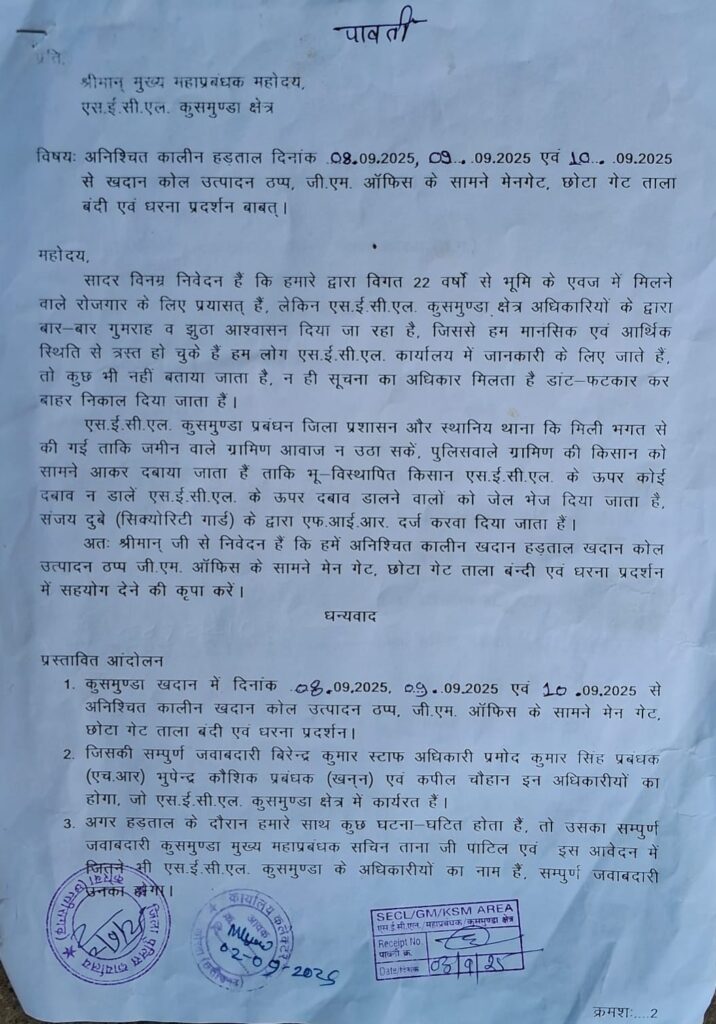 पावती
प्रति,
श्रीमान् मुख्य महाप्रबंधक महोदय,
एस.ई.सी.एल. कुसमुण्डा क्षेत्र
विषयः अनिश्चित कालीन हड़ताल दिनांक .08.09.2025, 09... .09.2025 एवं 10... .09.2025
से खदान कोल उत्पादन ठप्प, जी.एम. ऑफिस के सामने मेनगेट, छोटा गेट ताला
बंदी एवं धरना प्रदर्शन बाबत्।
महोदय,
सादर विनम्र निवेदन हैं कि हमारे द्वारा विगत 22 वर्षो से भूमि के एवज में मिलने
वाले रोजगार के लिए प्रयासत् हैं, लेकिन एस.ई.सी.एल. कुसमुण्डा क्षेत्र अधिकारियों के द्वारा
बार–बार गुमराह व झुठा आश्वासन दिया जा रहा है, जिससे हम मानसिक एवं आर्थिक
स्थिति से त्रस्त हो चुके हैं हम लोग एस.ई.सी.एल. कार्यालय में जानकारी के लिए जाते हैं,
तो कुछ भी नहीं बताया जाता है, न ही सूचना का अधिकार मिलता है डांट–फटकार कर
बाहर निकाल दिया जाता हैं।
एस.ई.सी.एल. कुसमुण्डा प्रबंधन जिला प्रशासन और स्थानिय थाना कि मिली भगत से
की गई ताकि जमीन वाले ग्रामिण आवाज न उठा सकें, पुलिसवाले ग्रामिण की किसान को
सामने आकर दबाया जाता हैं ताकि भू–विस्थापित किसान एस.ई.सी.एल. के ऊपर कोई
दबाव न डालें एस.ई.सी.एल. के ऊपर दबाव डालने वालों को जेल भेज दिया जाता है,
संजय दुबे (सिक्योरिटी गार्ड) के द्वारा एफ.आई.आर. दर्ज करवा दिया जाता हैं।
अतः श्रीमान् जी से निवेदन हैं कि हमें अनिश्चित कालीन खदान हड़ताल खदान कोल
उत्पादन ठप्प जी.एम. ऑफिस के सामने मेन गेट, छोटा गेट ताला बंन्दी एवं धरना प्रदर्शन
में सहयोग देने की कृपा करें।
धन्यवाद
प्रस्तावित आंदोलन
1. कुसमुण्डा खदान में दिनांक .08.09.2025, 09. .09.2025 एवं 10 .09.2025 से
अनिश्चित कालीन खदान कोल उत्पादन ठप्प, जी.एम. ऑफिस के सामने मेन गेट,
छोटा गेट ताला बंदी एवं धरना प्रदर्शन।
2. जिसकी सम्पुर्ण जवाबदारी बिरेन्द्र कुमार स्टाफ अधिकारी प्रमोद कुमार सिंह प्रबंधक
(एच.आर) भुपेन्द्र कौशिक प्रबंधक (खनन) एवं कपील चौहान इन अधिकारीयों का
होगा, जो एस.ई.सी.एल. कुसमुण्डा क्षेत्र में कार्यरत हैं।
3. अगर हड़ताल के दौरान हमारे साथ कुछ घटना–घटित होता हैं, तो उसका सम्पुर्ण
जवाबदारी कुसमुण्डा मुख्य महाप्रबंधक सचिन ताना जी पाटिल एवं इस आवेदन में
जितने भी एस.ई.सी.एल. कुसमुण्डा के अधिकारीयों का नाम हैं, सम्पुर्ण जवाबदारी
उनका होगा।
जिला पुलिस कार्यालय
कोरबा छत्तीसगढ़
कार्यालय कलेक्टर
आवक
02-09-2025
SECL/GM/KSM AREA
एस.ई.सी.एल/महाप्रबंधक/कुसमुण्डा क्षेत्र
Receipt No.
पावती क्र.
Date/दिनांक 03/9/25
क्रमशः....2